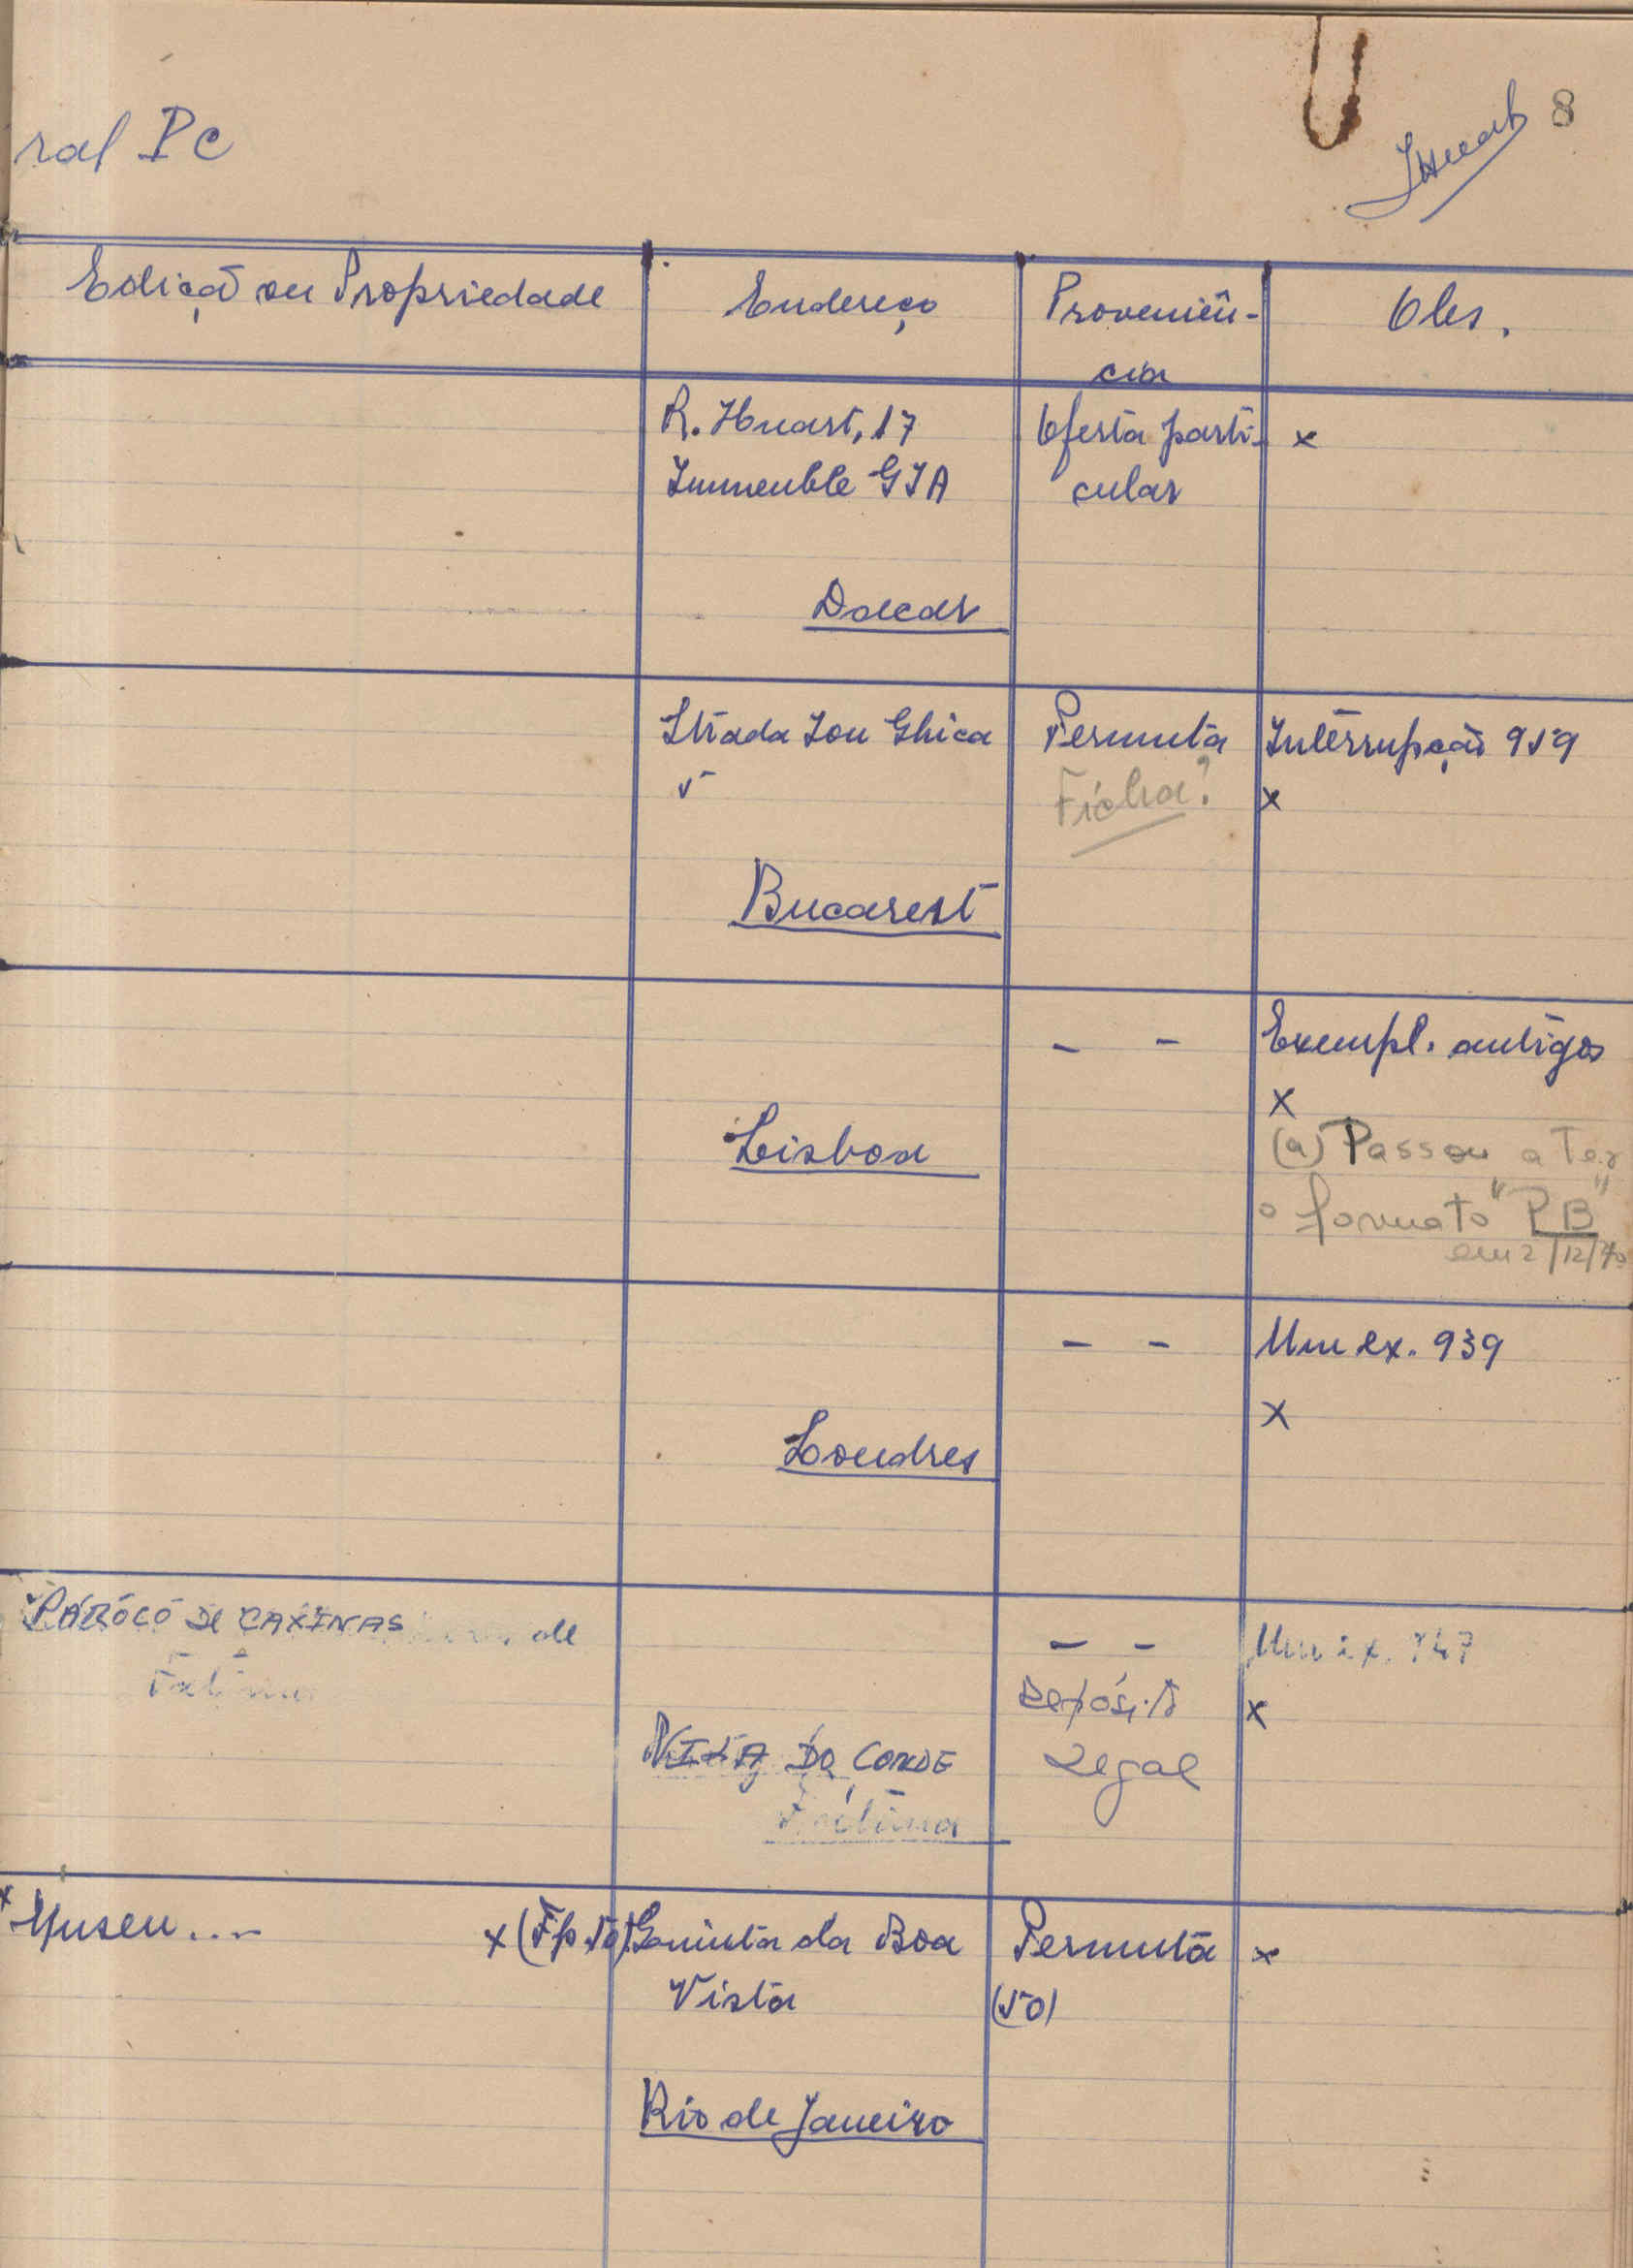 ral Pc
8
Edição ou Propriedade Endereço Proveniên- Obs.
cia
R. Huart, 17 Oferta parti- x
Immeuble GIA cular
Dacar
Strada Ion Ghica Permuta Interrupção 959
5 Ficha? x
Bucarest
- - Exempl. antigos
x
Lisboa (a) Passou a Ter
o formato "PB"
em 2/12/70
- - Um ex. 939
x
Londres
PÁROCO DE CAXINAS de - - Um ex. 947
Fátima Depósito x
VILA DO CONDE Legal
Fátima
x Museu... x (Fp. 50) Quinta da Boa Permuta x
Vista (50)
Rio de Janeiro